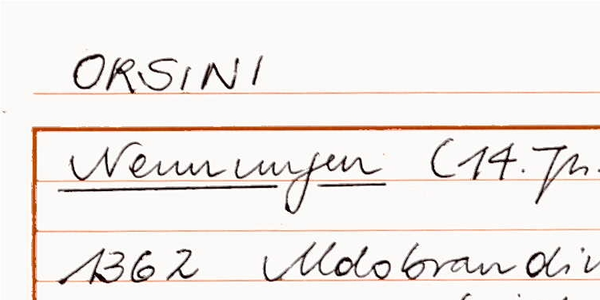 ORSINI
Nennungen (14. Jh.
1362 Aldobrandin